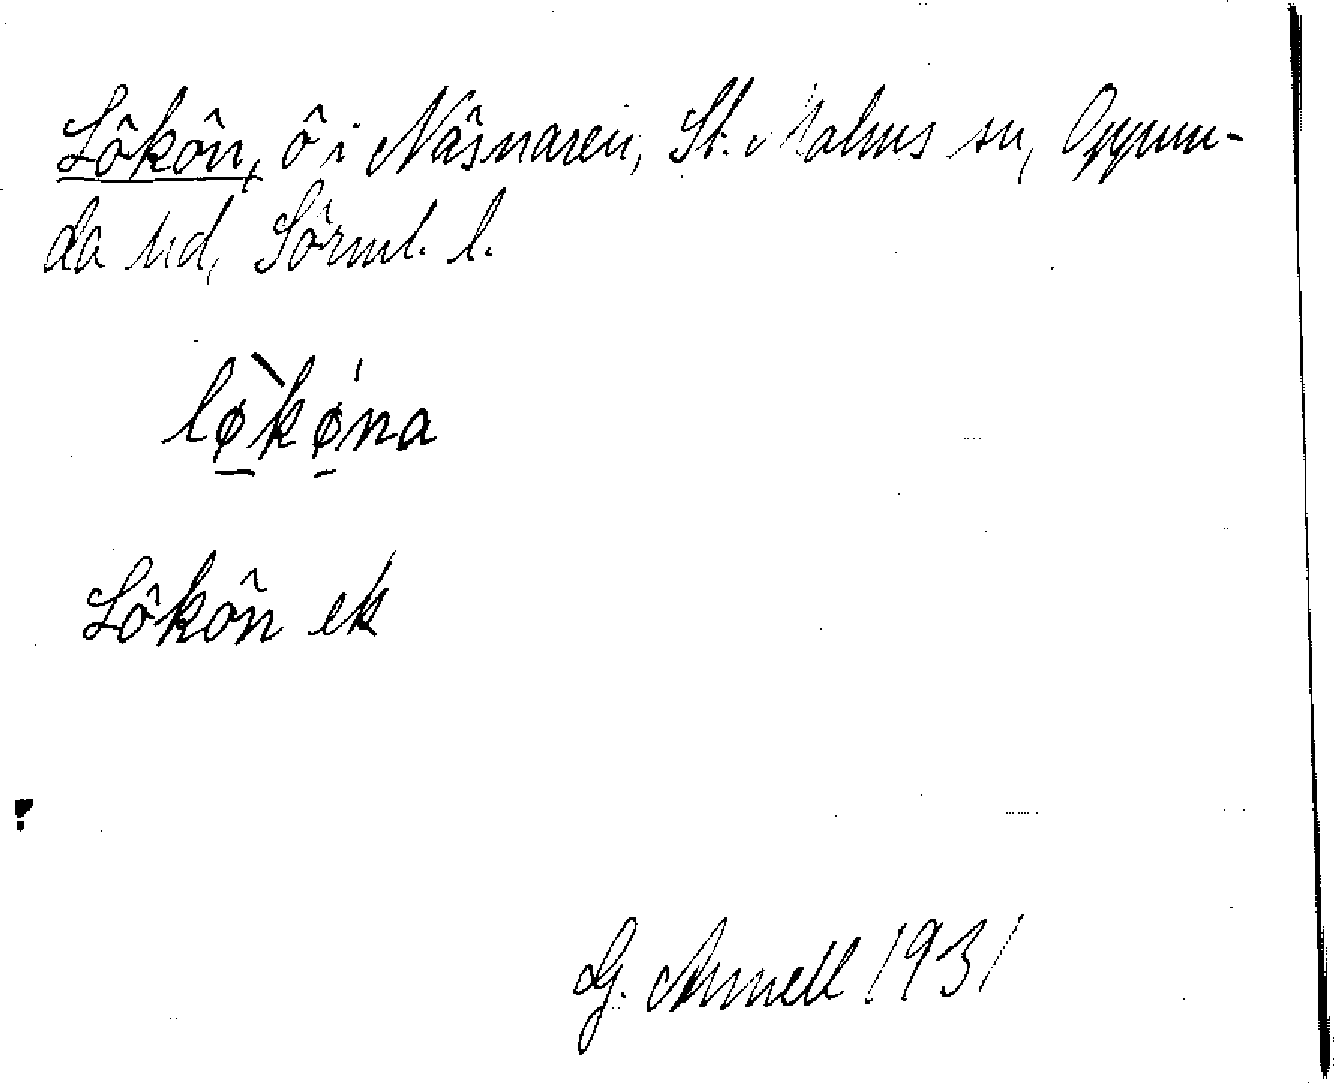 Lökön, ö i Näsnaren, St. Malms sn, Oppun-
da hd, Sörml. l.
lø̠̀kǿ̠na
Lökön ek
G. Arnell 1931